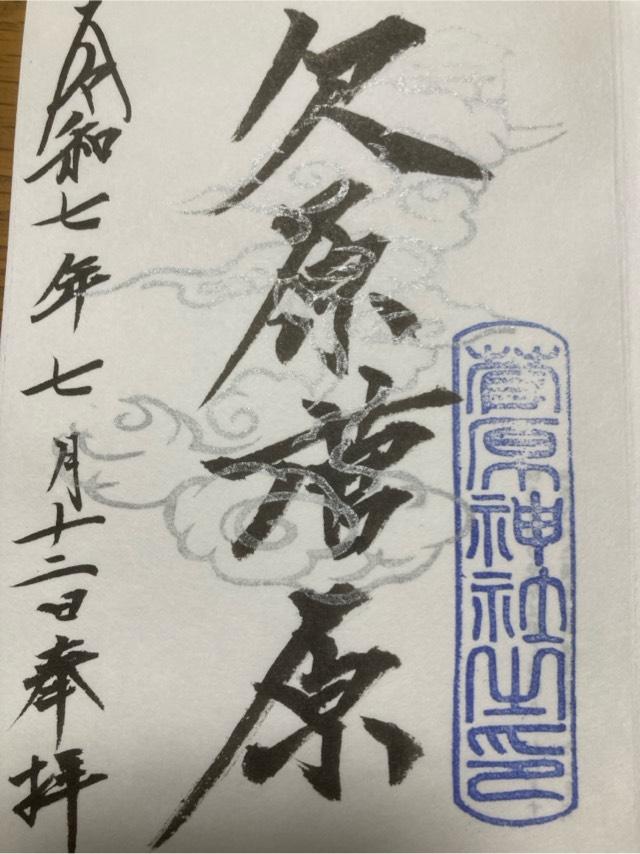 菅原神社之印
久原菅原
令和七年七月十二日奉拝